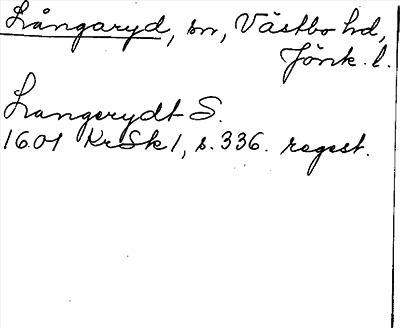 Långaryd, sn, Västbo hd,
Jönk. l.
Langerydt S.
1601 KrSk 1, s. 336. regest.